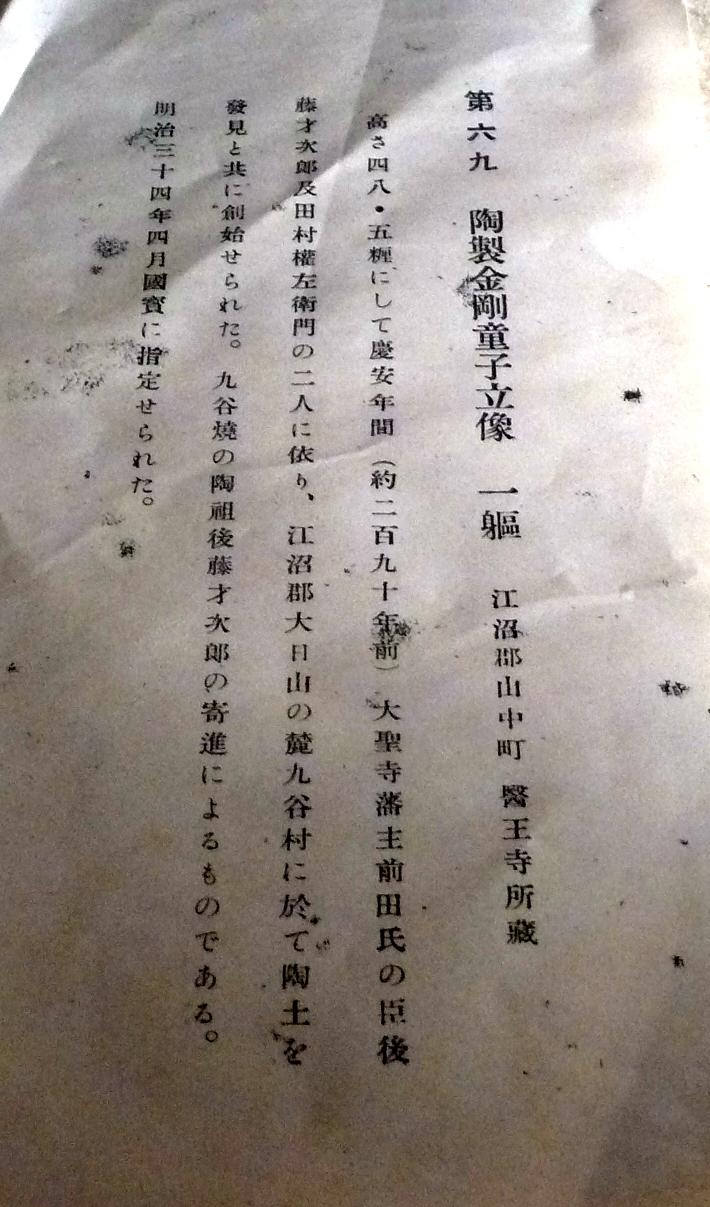 第六九 陶製金剛童子立像 一軀 江沼郡山中町 醫王寺所藏
高さ四八・五糎にして慶安年間（約二百九十年前）大聖寺藩主前田氏の臣後
藤才次郎及田村權左衛門の二人に依り、江沼郡大日山の麓九谷村に於て陶土を
發見と共に創始せられた。九谷燒の陶祖後藤才次郎の寄進によるものである。
明治三十四年四月國寳に指定せられた。